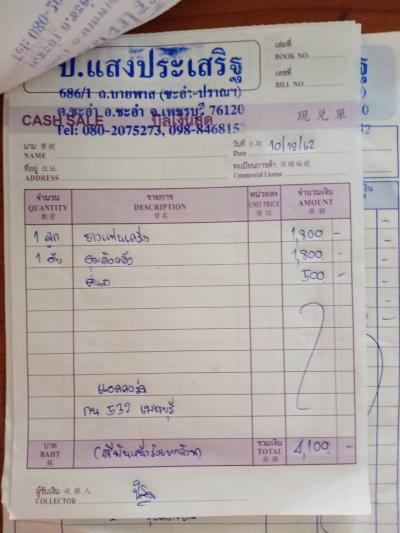 ป.แสงประเสริฐ
686/1 ถ.บายพาส (ชะอำ-ปราณฯ)
ต.ชะอำ อ.ชะอำ จ.เพชรบุรี 76120
Tel: 080-2075273, 098-8468152
เล่มที่
BOOK NO.
เลขที่
BILL NO.
CASH SALE บิลเงินสด 現兌單
นาม 寶號
NAME
วันที่ 日期 10/19/62
Date
ที่อยู่ 住址
ADDRESS
ทะเบียนการค้า 商標編號
Commercial License
จำนวน รายการ หน่วยละ จำนวนเงิน
QUANTITY DESCRIPTION UNIT PRICE AMOUNT
數量 貨名
1 ลูก ยางแท่นเครื่อง 1,800 -
1 1,800 -
500 -
แอคคอร์ด
กน 532 เพชรบุรี
บาท รวมเงิน
BAHT (สี่พันหนึ่งร้อยบาทถ้วน) TOTAL 4,100 -
ผู้รับเงิน 收銀人
COLLECTOR